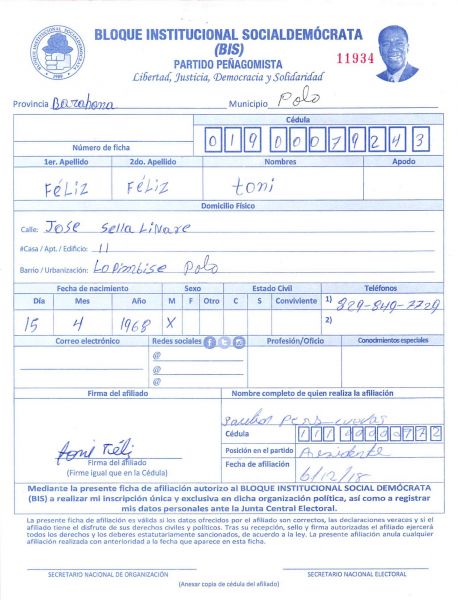 BLOQUE INSTITUCIONAL SOCIALDEMÓCRATA
BLOQUE INSTITUCIONAL SOCIALDEMÓCRATA
(BIS)
PARTIDO PEÑAGOMISTA
11934
Libertad, Justicia, Democracia y Solidaridad
Provincia Barahona Municipio Polo
Número de ficha
Cédula
01900079243
1er. Apellido 2do. Apellido Nombres Apodo
FÉLIZ FÉLIZ toni
Domicilio Físico
Calle: JOSE Sella LiNare
#Casa / Apt. / Edificio: 11
Barrio / Urbanización: Polo
Fecha de nacimiento Sexo Estado Civil Teléfonos
Día Mes Año M F Otro C S Conviviente 1) 829-849-7729
15 4 1968 X 2)
Correo electrónico Redes sociales Profesión/Oficio Conocimientos especiales
@
@
@
Firma del afiliado Nombre completo de quien realiza la afiliación
Cédula
Posición en el partido Presidente
Fecha de afiliación 6/12/18
toni Féli
Firma del afiliado
(Firme igual que en la Cédula)
Mediante la presente ficha de afiliación autorizo al BLOQUE INSTITUCIONAL SOCIAL DEMÓCRATA
(BIS) a realizar mi inscripción única y exclusiva en dicha organización política, así como a registrar
mis datos personales ante la Junta Central Electoral.
La presente ficha de afiliación es válida si los datos ofrecidos por el afiliado son correctos, las declaraciones veraces y si el
afiliado tiene el disfrute de sus derechos civiles y políticos. Tras su recepción, sello y firma autorizados el afiliado ejercerá
todos los derechos y los deberes estatutariamente sancionados, de acuerdo a la ley. La presente afiliación anula cualquier
afiliación realizada con anterioridad a la fecha que aparece en esta ficha.
SECRETARIO NACIONAL DE ORGANIZACIÓN SECRETARIO NACIONAL ELECTORAL
(Anexar copia de cédula del afiliado)